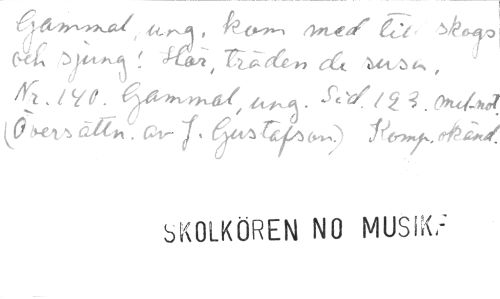 Gammal, ung, kom med till skogs
och sjung! Hör, träden de susa,
Nr. 140. Gammal, ung. Sid. 123. mel-not.
(Översättn. av J. Gustafson.) Komp. okänd.
SKOLKÖREN NO MUSIK